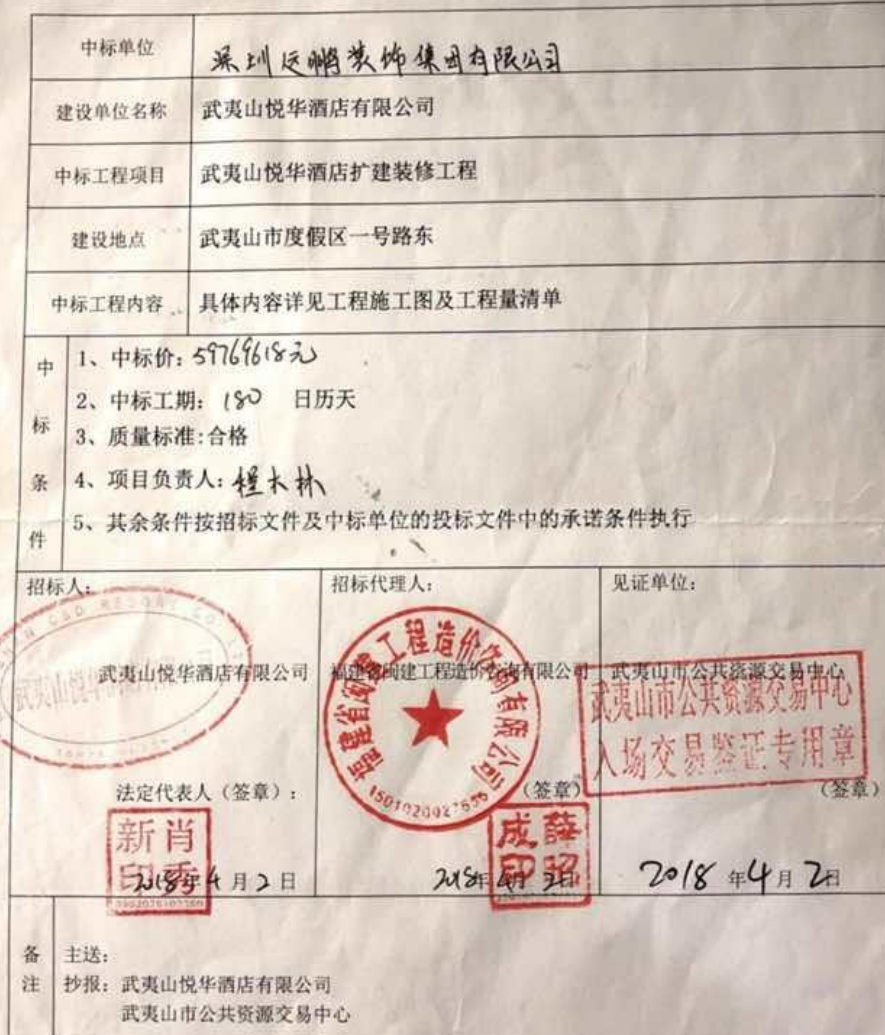 中标单位 深圳远鹏装饰集团有限公司
建设单位名称 武夷山悦华酒店有限公司
中标工程项目 武夷山悦华酒店扩建装修工程
建设地点 武夷山市度假区一号路东
中标工程内容 具体内容详见工程施工图及工程量清单
中标条件
1、中标价:59769618元
2、中标工期: 180 日历天
3、质量标准:合格
4、项目负责人:程木林
5、其余条件按招标文件及中标单位的投标文件中的承诺条件执行
招标人:
武夷山悦华酒店有限公司
法定代表人(签章):
新肖
印秀
2018年4月2日
招标代理人:
福建省闽建工程造价咨询有限公司
福建省闽建工程造价咨询有限公司
(签章)
成薛
印昭
2018年4月2日
见证单位:
武夷山市公共资源交易中心
武夷山市公共资源交易中心
入场交易鉴证专用章
(签章)
2018年4月2日
备注
主送:
抄报:武夷山悦华酒店有限公司
武夷山市公共资源交易中心